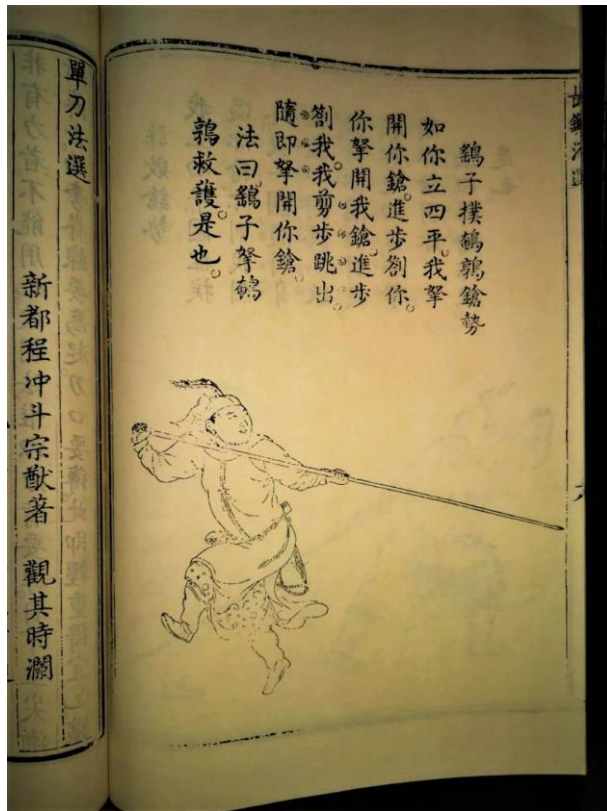 長鎗法選
鷂子撲鵪鶉鎗勢
如你立四平。我拏
開你鎗。進步劄你。
你拏開我鎗。進步
劄我。我剪步跳出。
隨即拏開你鎗。
法曰。鷂子拏鵪
鶉救護是也。
單刀法選
新都程冲斗宗猷著 觀其時瀾